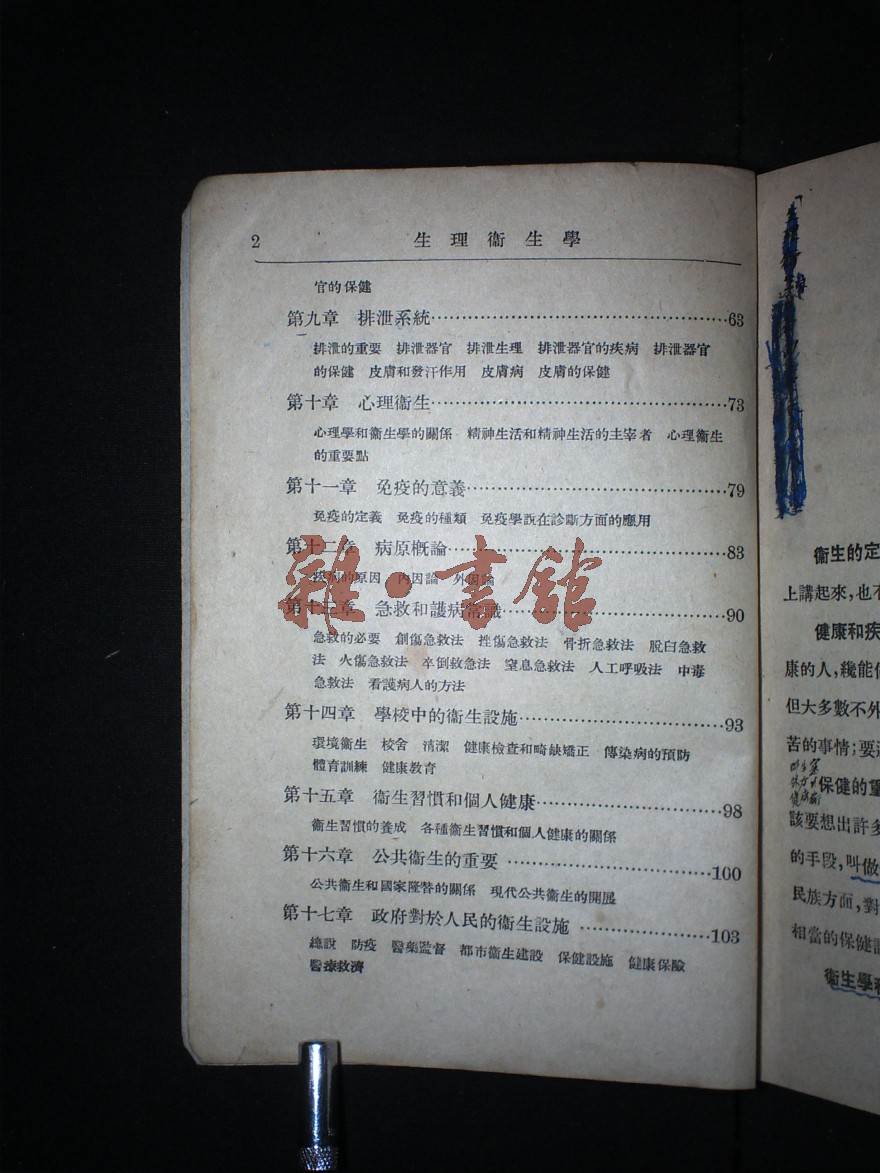 2 生理衞生學
官的保健
第九章 排泄系統……63
排泄的重要 排泄器官 排泄生理 排泄器官的疾病 排泄器官
的保健 皮膚和發汗作用 皮膚病 皮膚的保健
第十章 心理衞生……73
心理學和衞生學的關係 精神生活和精神生活的主宰者 心理衞生
的重要點
第十一章 免疫的意義……79
免疫的定義 免疫的種類 免疫學說在診斷方面的應用
第十二章 病原槪論……83
疾病的原因 內因論 外因論
第十三章 急救和護病常識……90
急救的必要 創傷急救法 挫傷急救法 骨折急救法 脫臼急救
法 火傷急救法 卒倒救急法 窒息急救法 人工呼吸法 中毒
急救法 看護病人的方法
第十四章 學校中的衞生設施……93
環境衞生 校舍 清潔 健康檢查和畸缺矯正 傳染病的預防
體育訓練 健康敎育
第十五章 衞生習慣和個人健康……98
衞生習慣的養成 各種衞生習慣和個人健康的關係
第十六章 公共衞生的重要……100
公共衞生和國家隆替的關係 現代公共衞生的開展
第十七章 政府對於人民的衞生設施……103
總說 防疫 醫藥監督 都市衞生建設 保健設施 健康保險
醫療救濟
雜·書館
衞生的定
上講起來,也不
健康和疾
康的人,纔能
但大多數不外
苦的事情;要
保健的重
該要想出許多
的手段,叫做
民族方面,對
相當的保健
衞生學和